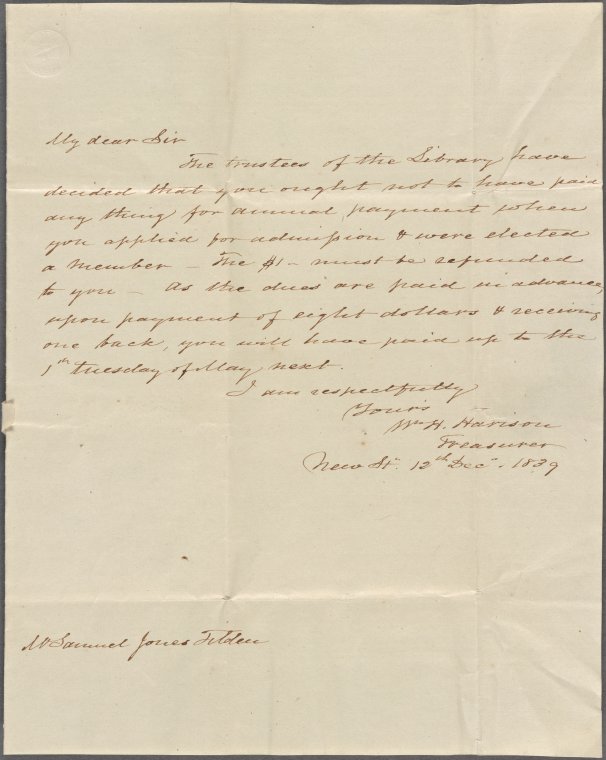 My dear Sir
The trustees of the Library have
decided that you ought not to have paid
any thing for annual payment when
you applied for admission & were elected
a member – The $1 – must be refunded
to you – As the dues are paid in advance,
upon payment of eight dollars & receiving
one back, you will have paid up to the
1st tuesday of May next.
I am respectfully
Yours
Wm H. Harison
Treasurer
New St. 12th Dec. 1839
Mr Samuel Jones Tilden